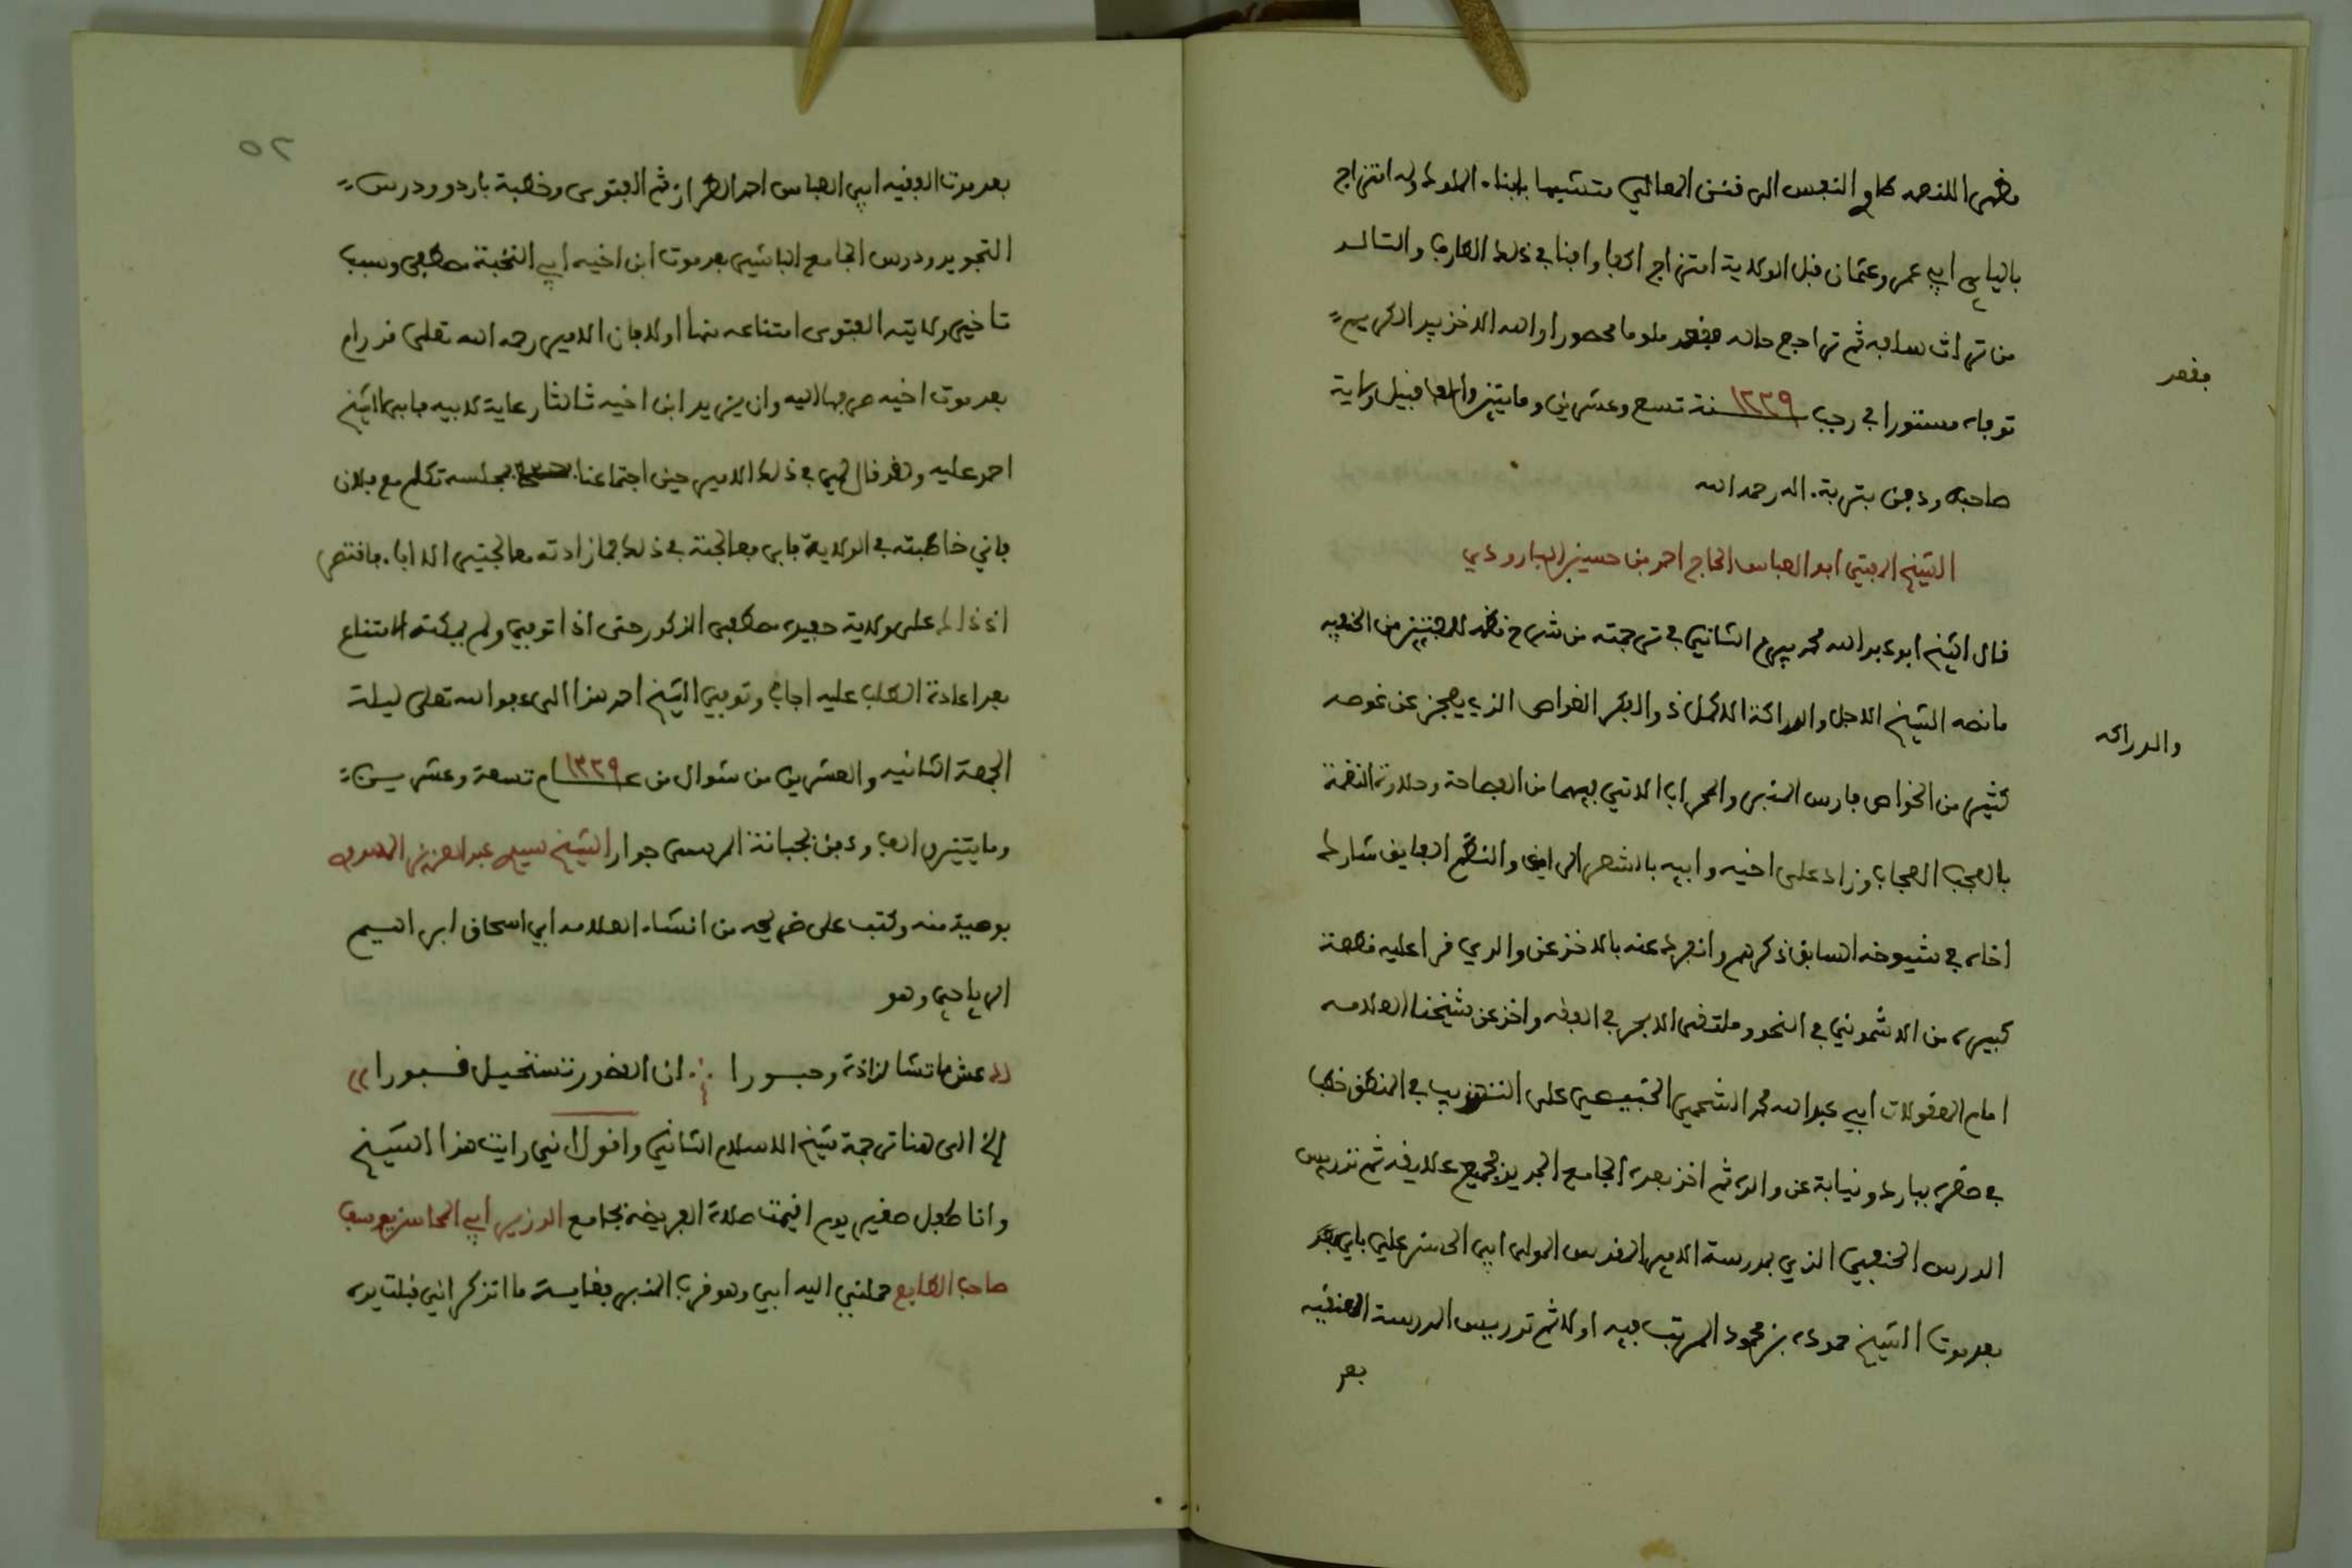 مظهرا للنعمه طامح النفس الى فنن المعالي متشبها بابناء الملوك وله امتزاج
بالباي ابي عمر وعثمان قبل الولاية امتزاج الحقا وافنا في ذلك الطارف والتالد
من تراث سلفه ثم تراجع حاله فقعد ملوما محصورا والله الاخذ بيد الكريم
فقعد
توفاه مستورا في رجب سنة ١٢٢٩ تسع وعشرين ومايتين والف قبيل ولاية
صاحبه ودفن بتربة اله رحمه الله
الشيخ المفتي ابو العباس الحاج احمد بن حسين البارودي
قال الشيخ ابو عبد الله محمد بيرم الثاني في ترجمته من شرح نظمه للمفتيين من الحنفيه
ما نصه الشيخ الاجل والدراكة الاكمل ذو الفكر الغواص الذي يعجز عن غوصه
والدراكه
كثير من الخواص فارس المنبر والمحراب الاتي فيهما من الفصاحة وحلاوة النغمة
بالعجب العجاب وزاد على اخيه وابيه بالشعر الرايق والنظم الفايق شارك
اخاه في شيوخه السابق ذكرهم وانفرد عنه بالاخذ عن والدي قرا عليه قطعة
كبيره من الاشموني في النحو وملتقى الابحر في الفقه واخذ عن شيخنا العلامه
امام المعقولات ابي عبد الله محمد الشحمي الخبيصي على التهذيب في المنطق خطب
في حضرة بباردو نيابة عن والده ثم اخذ بعده الجامع الجديد بجميع علايقه ثم تدريس
الدرس الحنفي الذي بمدرسة الامير المقدس المولى ابي الحسن علي باي بعد
بعد موت الشيخ حموده بن محمود المرتب فيه اولا ثم تدريس المدرسة العنقيه
بعد
٥٢
بعد موت الفقيه ابي العباس احمد الطراز ثم الفتوى وخطبة باردو ودرس
التجويد ودرس الجامع الباشي بعد موت ابن اخيه ابي النخبة مصطفى وسبب
تاخير ولايته الفتوى امتناعه منها اولا فان الامير رحمه الله تعلى قد رام
بعد موت اخيه صرفها اليه وان يزيد ابن اخيه ثالثا رعاية لابيه فابى الشيخ
احمد عليه ولقد قال لي في ذلك الامير حين اجتماعنا بمجلسه تكلم مع فلان
فاني خاطبته في الولاية فابى فعالجته في ذلك فما زادته معالجتي الا ابا. فاقتصر
اذ ذاك على ولاية حفيده مصطفى المذكور حتى اذا توفي ولم يمكنه الامتناع
بعد اعادة الطلب عليه اجاب وتوفي الشيخ احمد هذا الى عفو الله تعلى ليلة
الجمعة الثانيه والعشرين من شوال من عام ١٢٢٩ تسعة وعشرين
ومايتين والف ودفن بجبانة المرسى جوار الشيخ سيدي عبد العزيز المهدوي
بوصية منه وكتب على ضريحه من انشاء العلامه ابي اسحاق ابراهيم
الرياحي وهو
عش ما تشا لذاذة وحبورا ∴ ان القصور تستحيل قبورا
الخ الى هنا ترجمة شيخ الاسلام الثاني واقول اني رايت هذا الشيخ
وانا طفل صغير يوم اقيمت صلاة الفريضه بجامع الوزير ابي المحاسن يوسف
صاحب الطابع حملني اليه ابي وهو قرب المنبر فغاية ما اتذكر اني قبلت يده